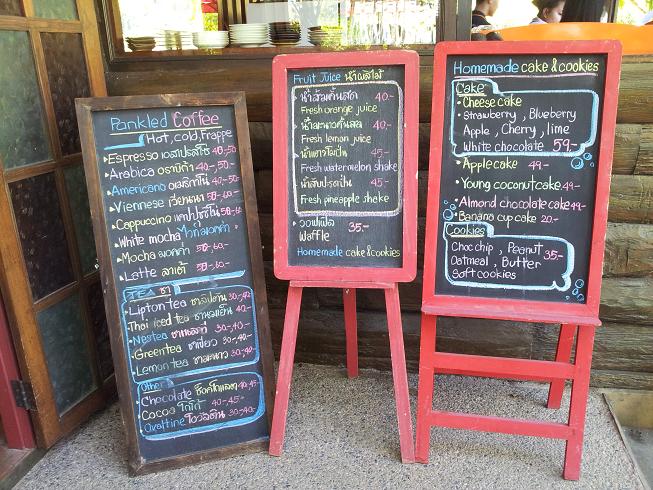 Pankled Coffee
Hot, cold, Frappe
Espresso เอสเปรสโซ่ 40,-50
Arabica อราบิก้า 40,-50,-
Americano อเมริกาโน่ 50,-
Viennese เวียนเนส 50,-60,-
Cappuccino คาปูชิโน่ 50,-60
White mocha ไวท์มอคค่า
Mocha มอคค่า 50,-60,-
Latte ลาเต้ 50,-60,-
TEA ชา
Lipton tea ชาลิปตัน 30,-40
Thai iced tea ชามะเย็น 40,-
Nestea ชาเนสที 30,-40,-
Green tea ชาเขียว 30,-40
Lemon tea ชามะนาว 30,-
Other
Chocolate ช็อคโกแลต 40,-45
Cocoa โกโก้ 40,-45,-
Ovaltine โอวัลติน 30,-40
Fruit Juice น้ำผลไม้
น้ำส้มคั้นสด 40.-
Fresh orange juice
น้ำมะนาวคั้นสด 40.-
Fresh lemon juice
น้ำแตงโมปั่น 45.-
Fresh watermelon shake
น้ำสับปะรดปั่น 45.-
Fresh pineapple shake
วอฟเฟิล 35.-
Waffle
Homemade cake & cookies
Homemade cake & cookies
Cake
Cheese cake
Strawberry , Blueberry
Apple , Cherry , lime
White chocolate 59.-
Apple cake 49.-
Young coconut cake 49.-
Almond chocolate cake 49.-
Banana cup cake 20.-
Cookies
Choc chip , Peanut 35.-
Oatmeal , Butter
Soft cookies